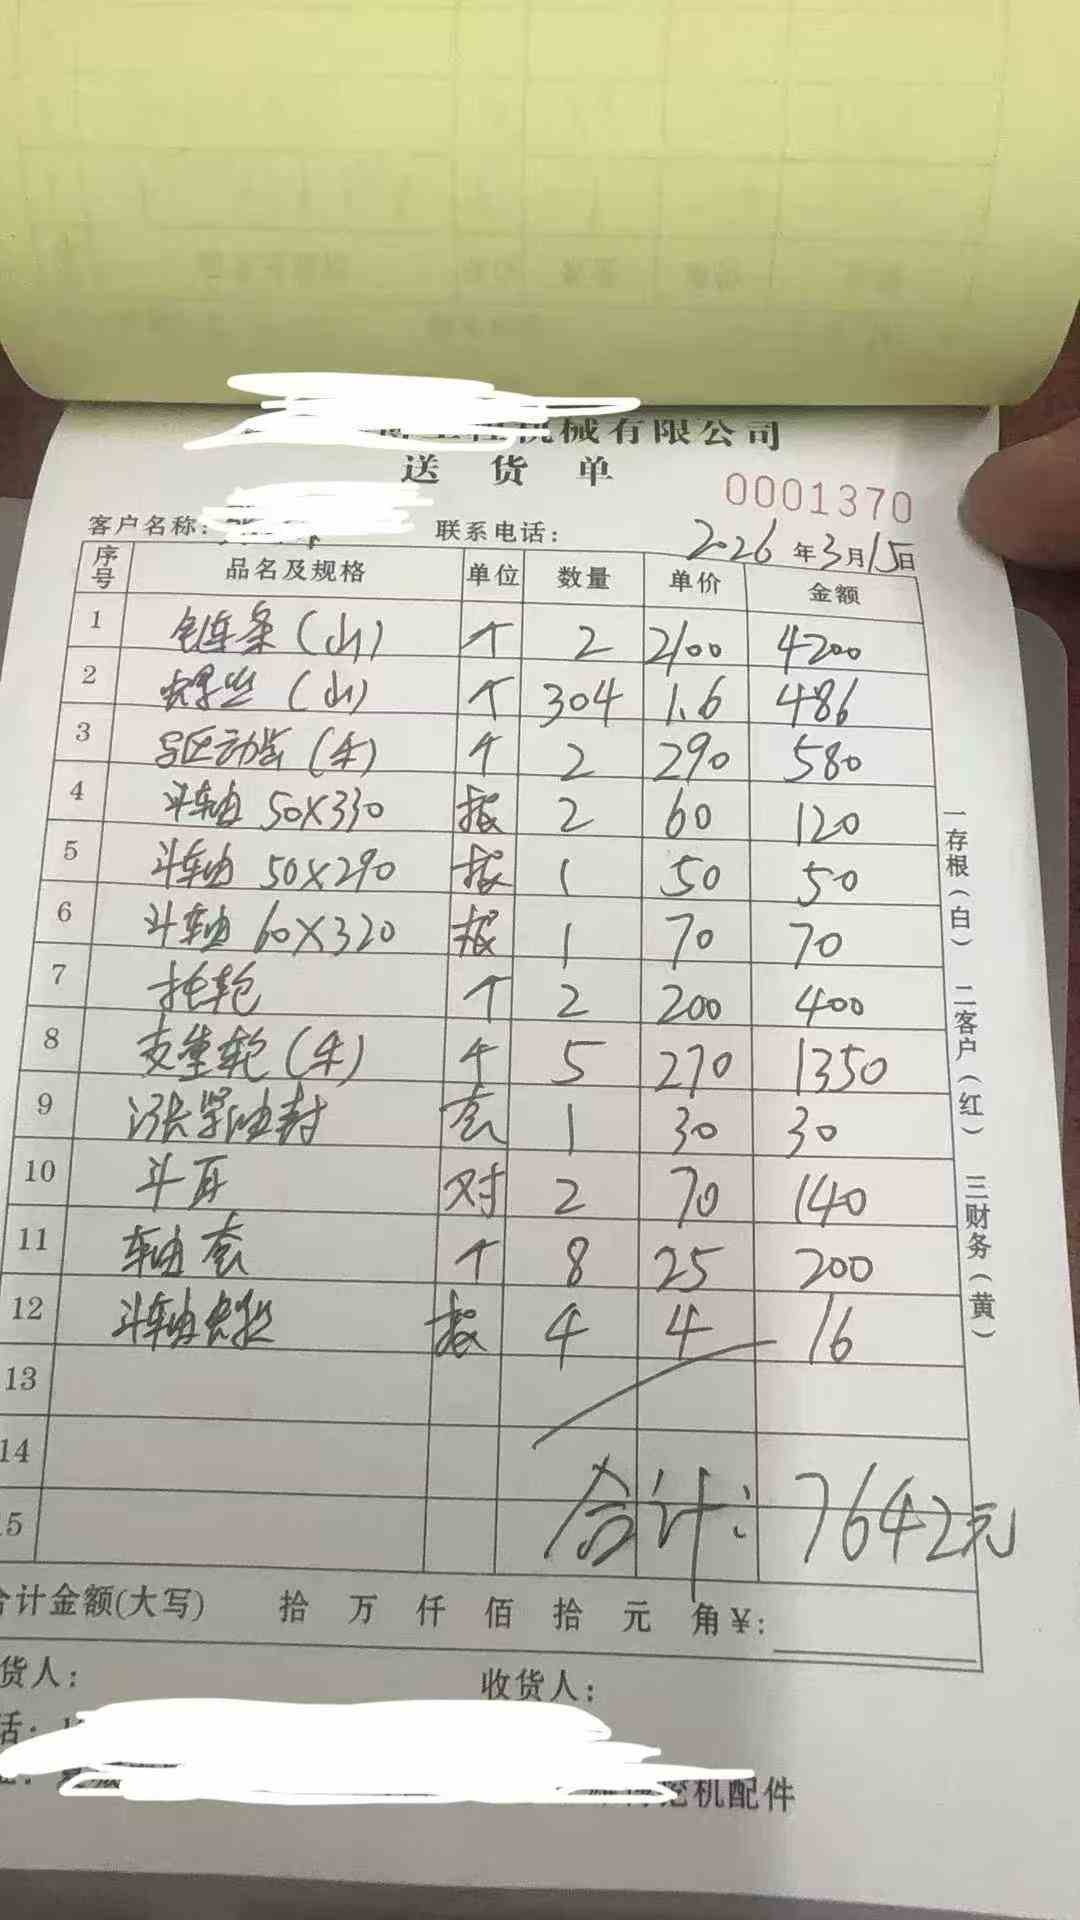 机械有限公司
送货单
0001370
客户名称: 联系电话: 2026年3月15日
序号 品名及规格 单位 数量 单价 金额
1 链条(山) 个 2 2100 4200
2 螺丝(山) 个 304 1.6 486
3 (牛) 个 2 290 580
4 斗轴 50X330 根 2 60 120
5 斗轴 50X290 根 1 50 50
6 斗轴 60X320 根 1 70 70
7 托轮 个 2 200 400
8 支重轮(牛) 个 5 270 1350
9 涨紧油封 套 1 30 30
10 斗耳 对 2 70 140
11 轴套 个 8 25 200
12 斗轴螺丝 根 4 4 16
13
14
15
合计: 7642元
合计金额(大写) 拾 万 仟 佰 拾 元 角 ¥:
货人: 收货人:
话:
挖机配件
一存根(白) 二客户(红) 三财务(黄)